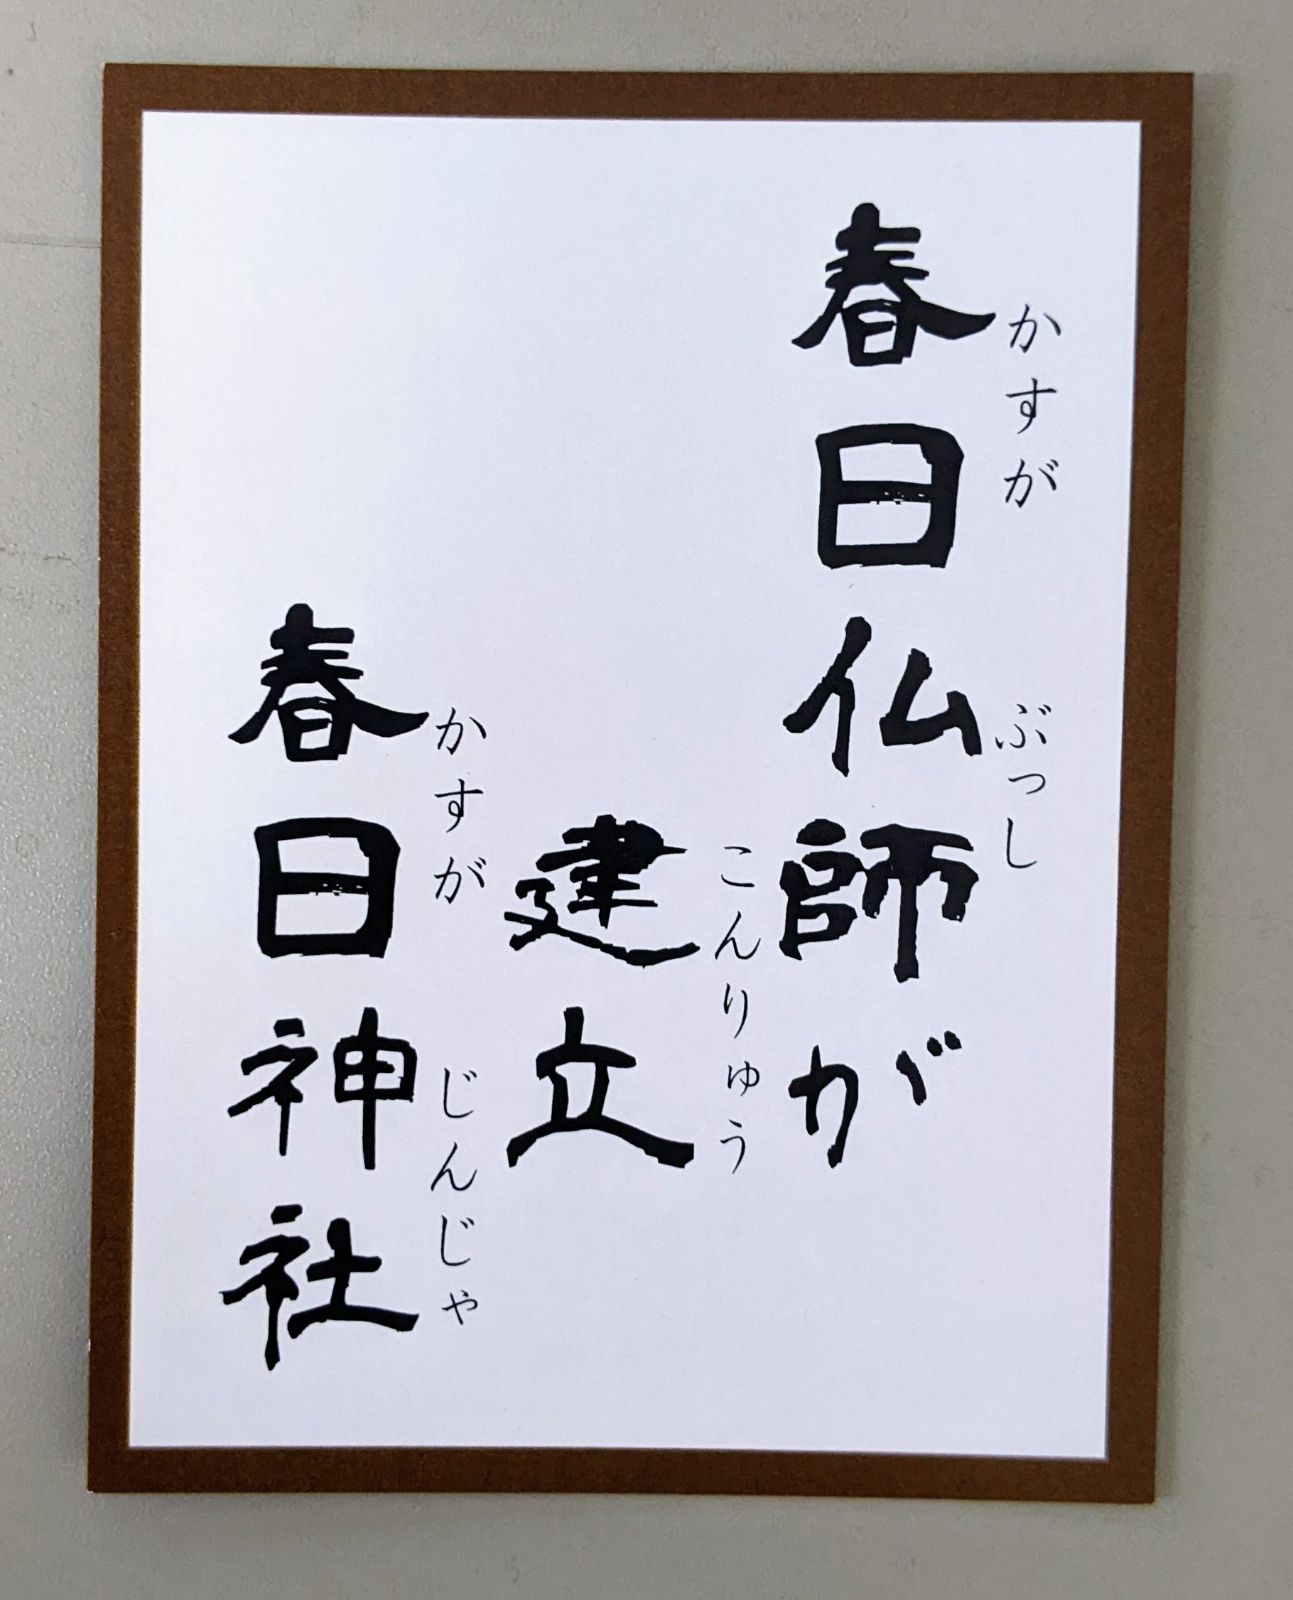 春日仏師が
かすが ぶっし
建立
こんりゅう
春日神社
かすが じんじゃ